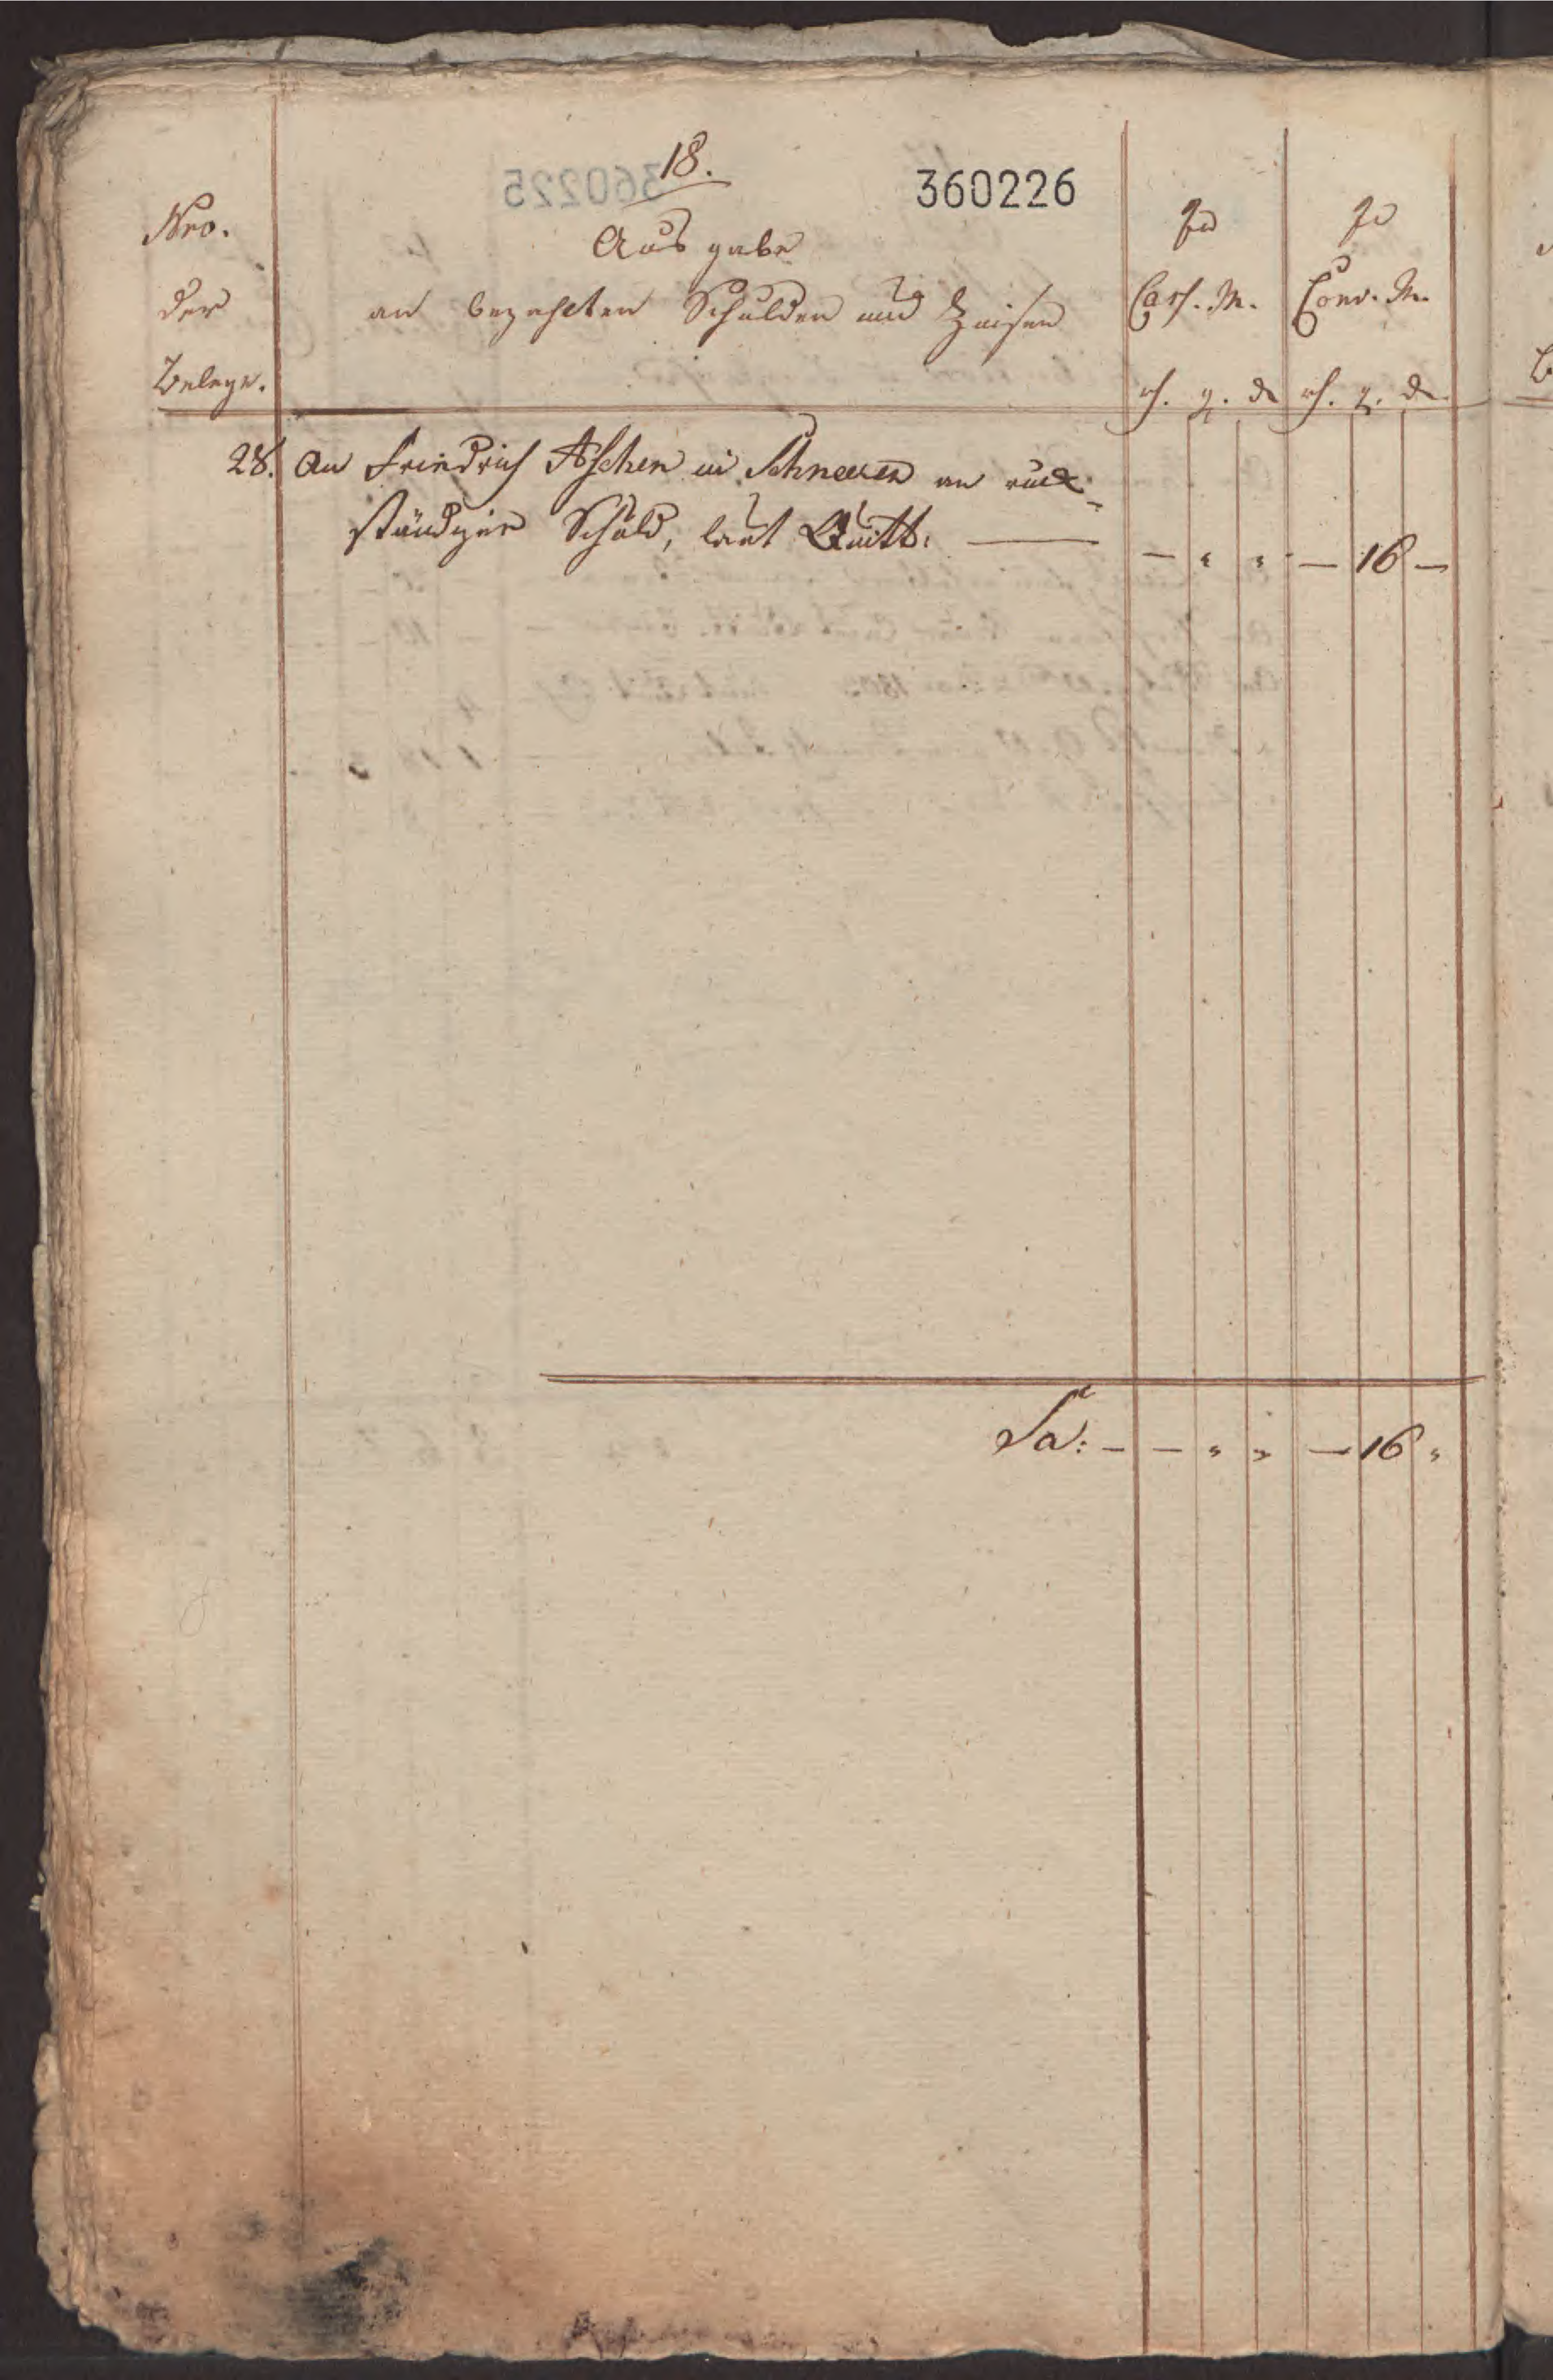 18.
360226
Nro.
der
Belege.
Ausgabe
an bezahlten Schulden und Zinsen
In
Cass. M.
rh. g. d
In
Conv. M.
rh. g. d
28. An Friedrich Aschen in Schneeren an rück-
ständiger Schuld, laut Quitt: — — " " — 16 —
Sa: — — " " — 16 "